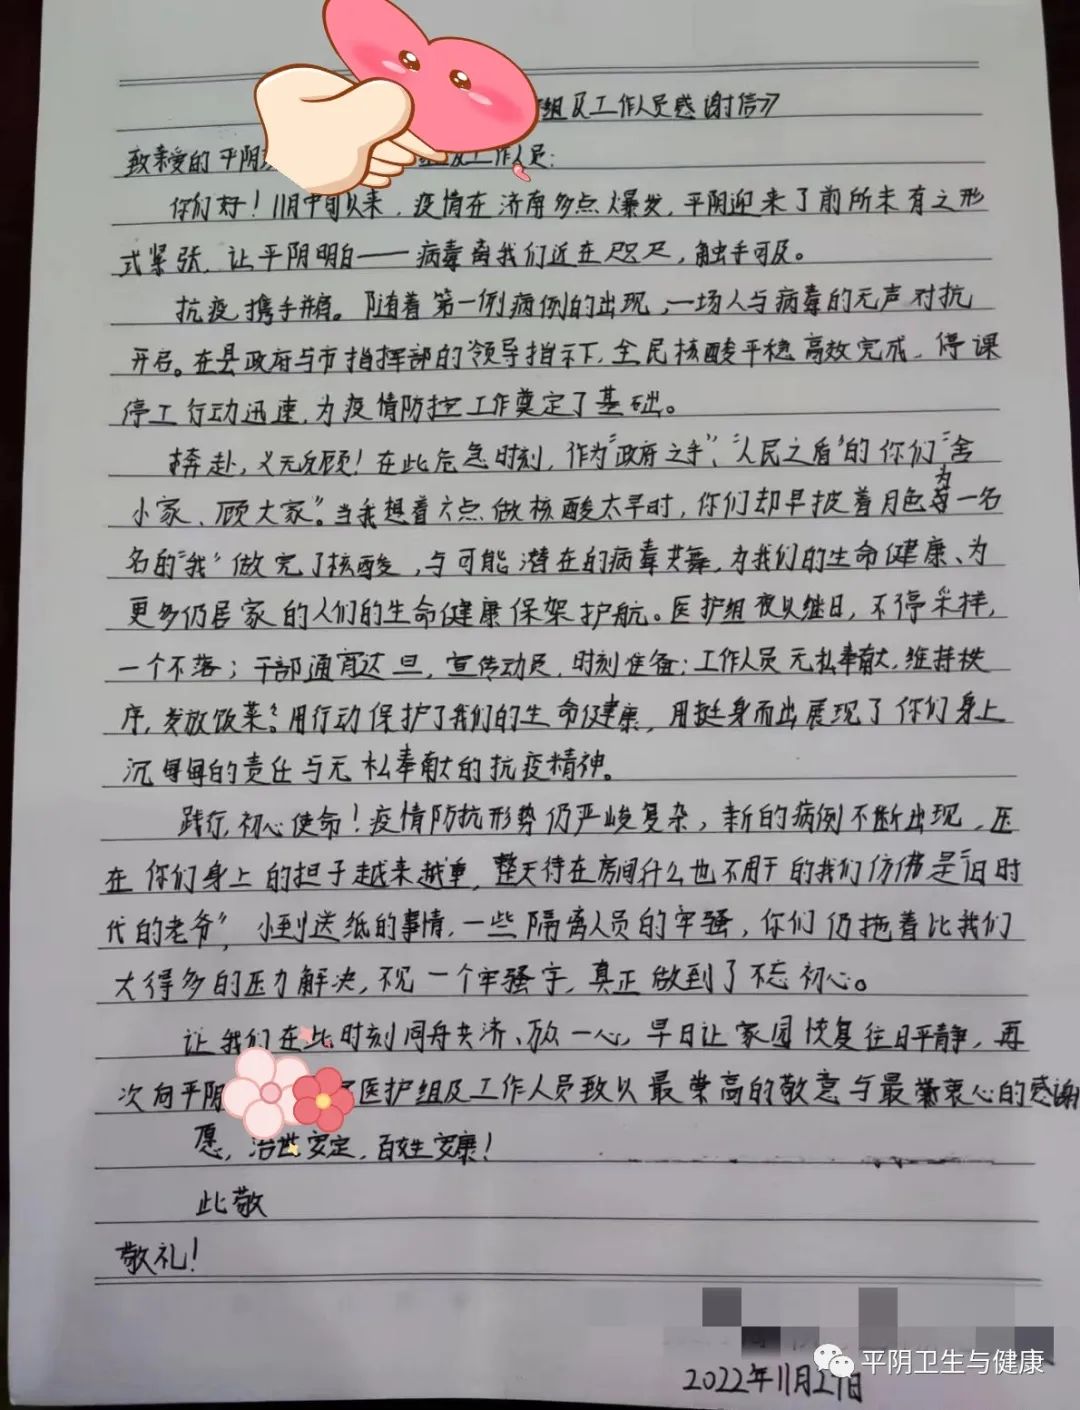 组及工作人员感谢信》
致亲爱的平阴 组及工作人员：
你们好！11月中旬以来，疫情在济南多点爆发，平阴迎来了前所未有之形
式紧张，让平阴明白——病毒离我们近在咫尺，触手可及。
抗疫，携手并肩。随着第一例病例的出现，一场人与病毒的无声对抗
开启。在县政府与市指挥部的领导指示下，全民核酸平稳高效完成，停课
停工行动迅速，为疫情防控工作奠定了基础。
奔赴，义无反顾！在此危急时刻，作为“政府之手”、“人民之盾”的你们“舍
小家、顾大家”。当我想着六点做核酸太早时，你们却早披着月色为每一名
名的“我”做完了核酸，与可能潜在的病毒共舞，为我们的生命健康、为
更多仍居家的人们的生命健康保架护航。医护组夜以继日，不停采样，
一个不落；干部通宵达旦，宣传动员，时刻准备；工作人员无私奉献，维持秩
序，发放饭菜。用行动保护了我们的生命健康，用挺身而出展现了你们身上
沉甸甸的责任与无私奉献的抗疫精神。
践行，初心使命！疫情防抗形势仍严峻复杂，新的病例不断出现，压
在你们身上的担子越来越重，整天待在房间什么也不用干的我们仿佛是“旧时
代的老爷”，小到送纸的事情，一些隔离人员的牢骚，你们仍拖着比我们
大得多的压力解决，不见一个牢骚字，真正做到了不忘初心。
让我们在此时刻同舟共济、放一心，早日让家园恢复往日平静，再
次向平阴 医护组及工作人员致以最崇高的敬意与最衷心的感谢
愿，治世安定，百姓安康！
此敬
敬礼！
2022年11月27日
平阴卫生与健康